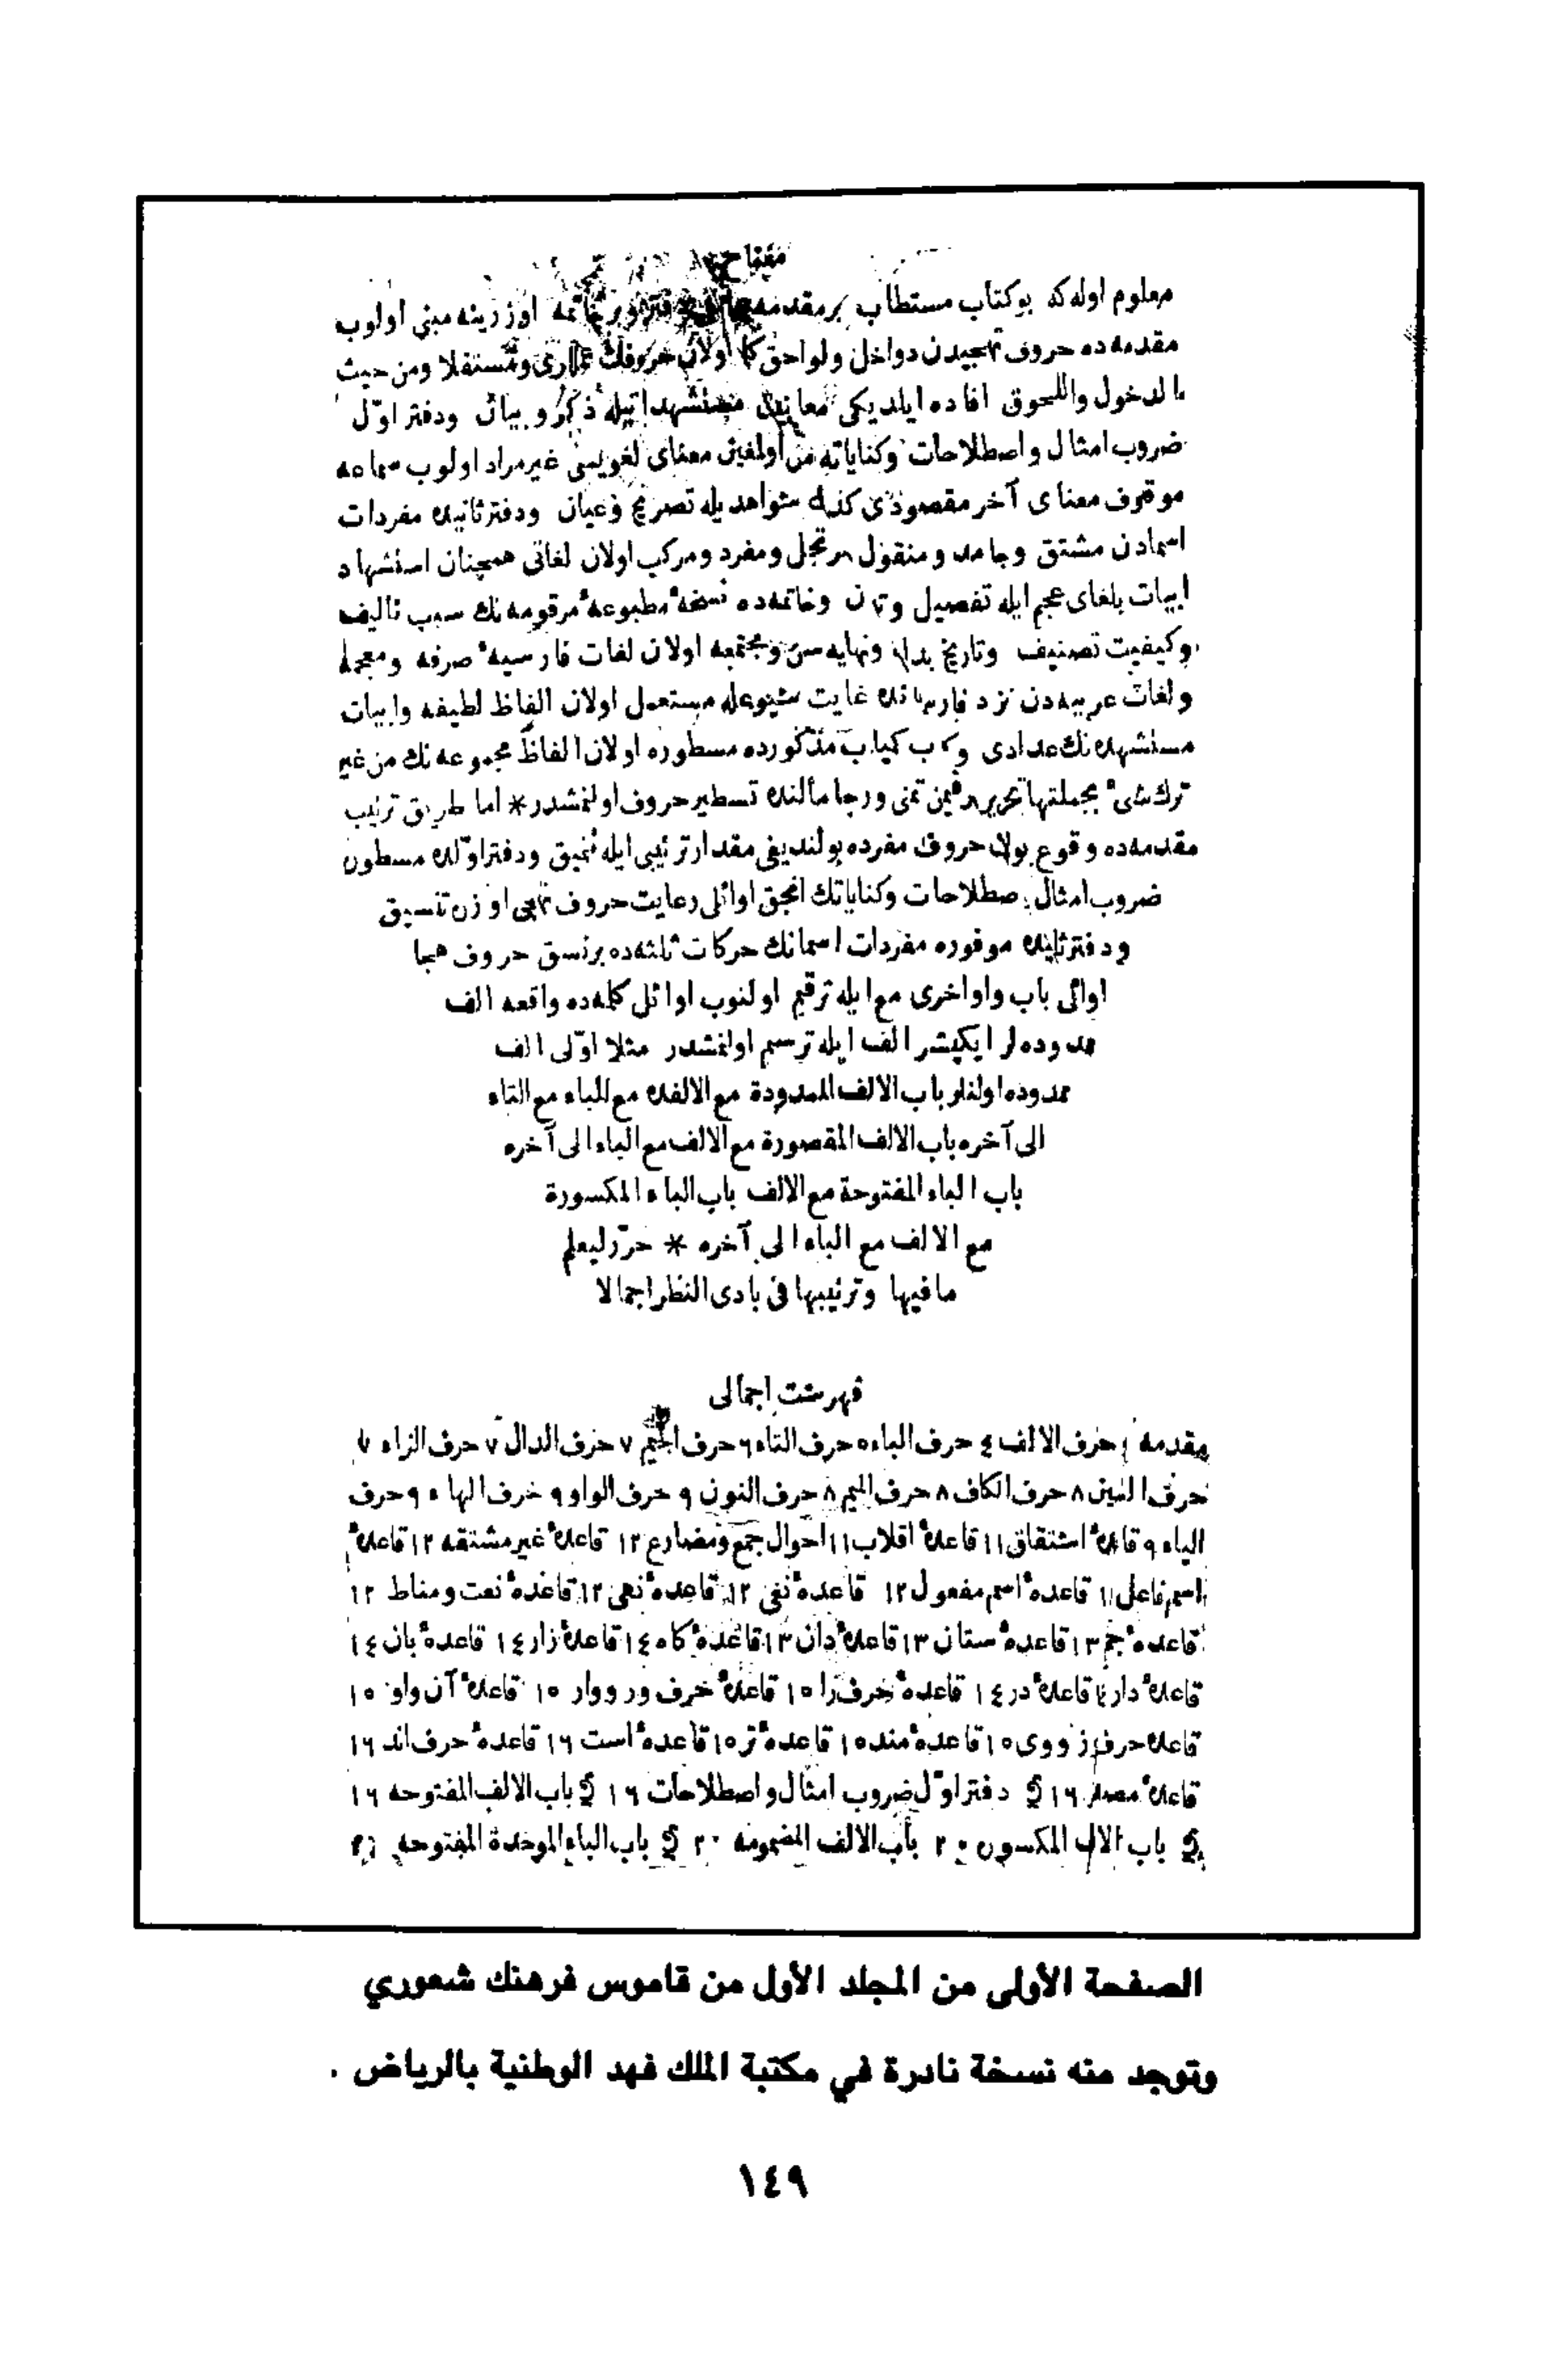 مفتاح
معلوم اوله كه بو كتاب مستطاب بر مقدمه خاتمه اوزرينه مبنى اولوب
مقدمه ده حروف تهجيدن دواخل ولواحق اولان حروفك ومستقلا ومن حيث
الدخول واللحوق افاده ايلديكى معانيدن مستشهداتيله ذكر و بيان ودفتر اوّل
ضروب امثال واصطلاحات وكناياته معناى لغويسى غير مراد اولوب سماعه
موقوف معناى آخر مقصودى شواهديله تصريح وعيان ودفتر ثانيده مفردات
اسمادن مشتق وجامد ومنقول مرتجل ومفرد ومركب اولان لغاتى همچنان استشهاد
ابيات بلغاى عجم ايله تفصيل وخاتمه ده نسخهٔ مطبوعهٔ مرقومه نك سبب تأليف
وكيفيت تصنيف وتاريخ ونهايه سى ومجتمعه اولان لغات فارسيهٔ صرفه ومعجمه
ولغات عربيه دن نزد غايت شيوعله مستعمل اولان الفاظ لطيفه وابيات
مستشهده نك عدادى مذكورده مسطوره اولان الفاظ مجموعه نك من غير
ترك شىء بجملتها تسطير حروف اولنمشدر * اما طريق ترتيب
مقدمه ده وقوع بولان حروف مفرده بولنديغى مقدار ترتيبى ايله تنميق ودفتر اوّلده مسطور
ضروب امثال اصطلاحات وكناياتك انجق اوائلى رعايت حروف تهجى اوزره تنسيق
ودفتر ثانيده موفوره مفردات اسمانك حركات ثلثه ده بر نسق حروف هجا
اوائلى باب واواخرى مع ايله ترقيم اولنوب اوائل كلمه ده واقعه الف
ممدوده لر ايكيشر الف ايله ترسيم اولنمشدر مثلا اوّلى الف
ممدوده اولنلر باب الالف الممدودة مع الالفده مع الباء مع التاء
الى آخره باب الالف المقصورة مع الالف مع الباء الى آخره
باب الباء المفتوحة مع الالف باب الباء المكسورة
مع الالف مع الباء الى آخره * حرّر ليعلم
ما فيها وترتيبها فى بادى النظر اجمالا
فهرست اجمالى
مقدمه حرف الالف ٤ حرف الباء ٥ حرف التاء ٦ حرف الجيم ٧ حرف الدال ٧ حرف الزاء ٧
حرف الشين ٨ حرف الكاف ٨ حرف الميم ٨ حرف النون ٩ حرف الواو ٩ حرف الهاء ٩ حرف
الياء ٩ قاعدهٔ اشتقاق ١١ قاعدهٔ اقلاب ١١ احوال جمع ومضارع ١٢ قاعدهٔ غير مشتقه ١٢ قاعدهٔ
اسم فاعل قاعدهٔ اسم مفعول ١٢ قاعدهٔ نفى ١٢ قاعدهٔ نهى ١٢ قاعدهٔ نعت ومناط ١٢
قاعدهٔ جم ١٣ قاعدهٔ ستان ١٣ قاعدهٔ دان ١٣ قاعدهٔ كاه ١٤ قاعدهٔ زار ١٤ قاعدهٔ بان ١٤
قاعدهٔ دار قاعدهٔ در ١٤ قاعدهٔ حرف را ١٥ قاعدهٔ حرف ور ووار ١٥ قاعدهٔ آن واو ١٥
قاعدهٔ حرف ز ووى ١٥ قاعدهٔ مند ١٥ قاعدهٔ تر ١٥ قاعدهٔ است ١٦ قاعدهٔ حرف اند ١٦
قاعدهٔ مصدر ١٦ دفتر اوّل ضروب امثال واصطلاحات ١٦ باب الالف المفتوحه ١٦
باب الالف المكسوره ٢٠ باب الالف المضمومه ٢٠ باب الباء الموحدة المفتوحه
الصفحة الأولى من المجلد الأول من قاموس فرهنك شعوري
وتوجد منه نسخة نادرة في مكتبة الملك فهد الوطنية بالرياض .
١٤٩